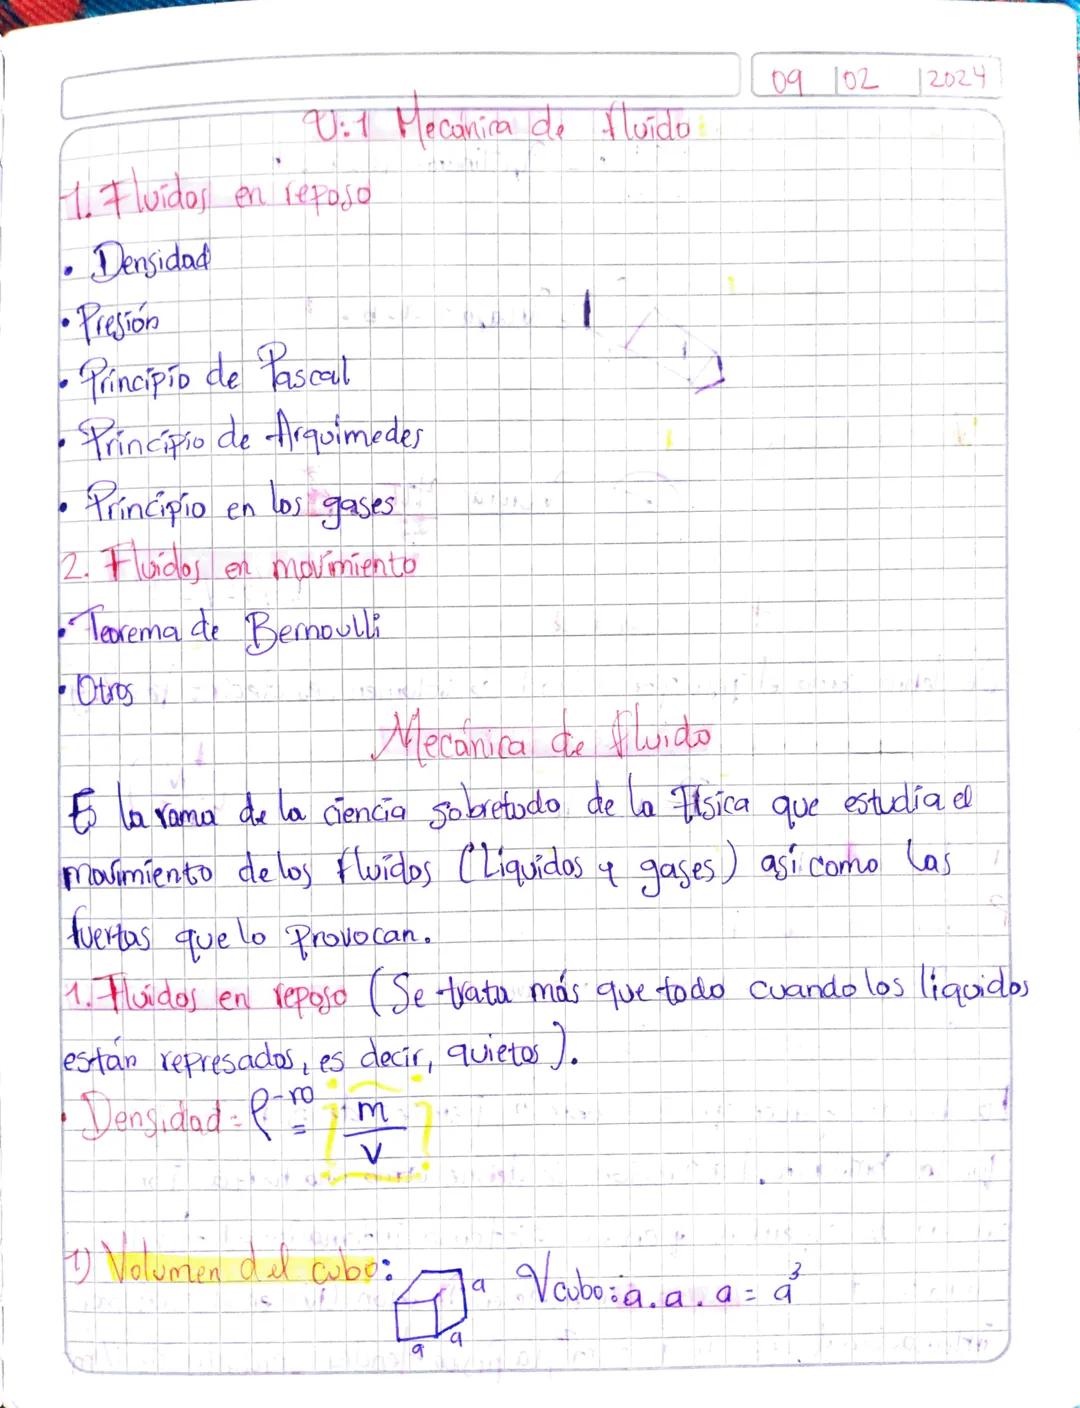 09 | 02 | 2024
U:1 Mecánica de fluido
1. Fluidos en reposo
• Densidad
• Presión
• Principio de Pascal
• Principio de Arquímedes
• Principio en los gases
2. Fluidos en movimiento
• Teorema de Bernoulli
• Otros
Mecánica de fluido
Es la rama de la ciencia sobretodo de la Física que estudia el
movimiento de los fluidos (Líquidos y gases) así como las
fuertas que lo provocan.
1. Fluidos en reposo (Se trata más que todo cuando los líquidos
están represados, es decir, quietos).
• Densidad = ρ-ro = m/v
1) Volumen del cubo: a a a Vcubo: a.a.a = a³